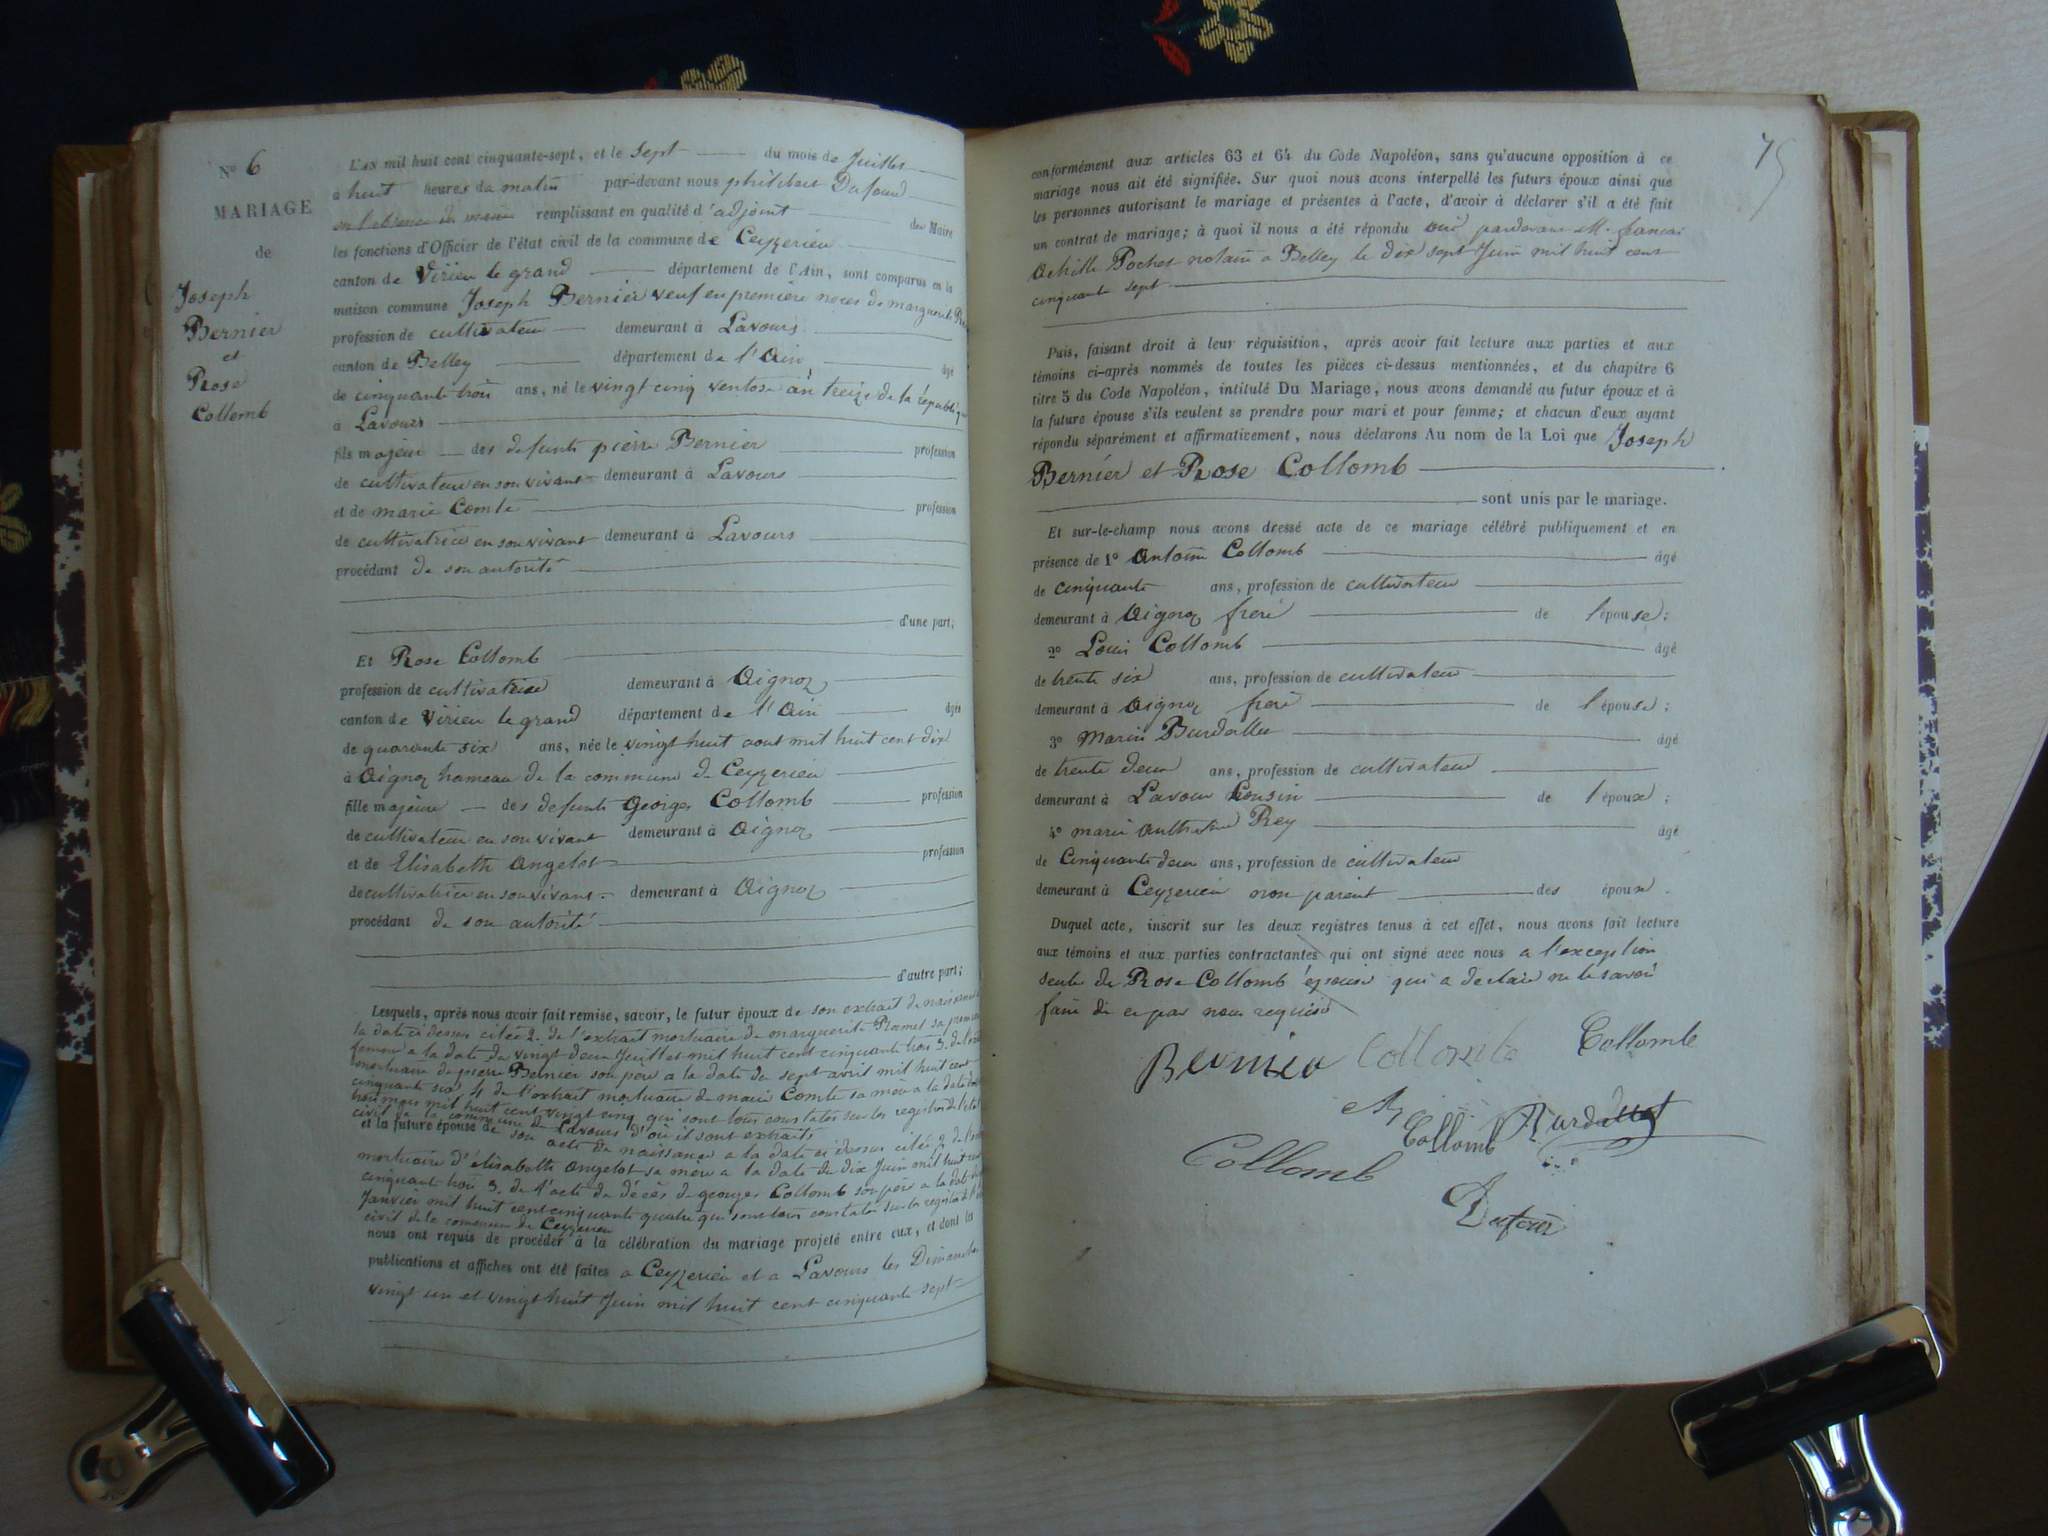 N° 6
MARIAGE
de
Joseph
Bernier
et
Rose
Collomb
L'AN mil huit cent cinquante-sept, et le sept du mois de Juillet
a huit heures du matin par-devant nous philibert Dufour
en l'absence du maire remplissant en qualité d'adjoint du Maire
les fonctions d'Officier de l'état civil de la commune de Ceyzerieu
canton de Virieu le grand département de l'Ain, sont comparus en la
maison commune Joseph Bernier veuf en première noces de marguerite
profession de cultivateur demeurant à Lavours
canton de Belley département de l'Ain âgé
de cinquante trois ans, né le vingt cinq ventose an treize de la république
à Lavours
fils majeur des defunts pierre Bernier profession
de cultivateur en son vivant demeurant à Lavours
et de marie Comte profession
de cultivatrice en son vivant demeurant à Lavours
procédant de son autorité
d'une part;
Et Rose Collomb
profession de cultivatrice demeurant à Aignoz
canton de Virieu le grand département de l'Ain âgée
de quarante six ans, née le vingt huit aout mil huit cent dix
à Aignoz hameau de la commune de Ceyzerieu
fille majeure des defunts Georges Collomb profession
de cultivateur en son vivant demeurant à Aignoz
et de Elisabeth Angelot profession
de cultivatrice en son vivant demeurant à Aignoz
procédant de son autorité
d'autre part;
Lesquels, après nous avoir fait remise, savoir, le futur époux de son extrait de naissance
la date ci dessus citée 2. de l'extrait mortuaire de marguerite Ramel sa première
femme a la date du vingt deux Juillet mil huit cent cinquante trois 3. de l'extrait
mortuaire de pierre Bernier son père a la date du sept avril mil huit cent
cinquante six 4 de l'extrait mortuaire de marie Comte sa mère a la date du
trois mars mil huit cent vingt cinq qui sont tous constatés sur les registres de l'état
civil de la commune de Lavours d'où il sont extraits
et la future épouse de son acte de naissance a la date ci dessus citée 2 de l'extrait
mortuaire d'élisabeth angelot sa mère a la date du dix Juin mil huit cent
cinquante trois 3. de l'acte de décès de georges Collomb son père a la date du
Janvier mil huit cent cinquante quatre qui sont tous constatés sur les registres de l'état
civil de la commune de Ceyzerieu
nous ont requis de procéder à la célébration du mariage projeté entre eux, et dont les
publications et affiches ont été faites a Ceyzerieu et a Lavours les Dimanches
vingt un et vingt huit Juin mil huit cent cinquante sept
75
conformément aux articles 63 et 64 du Code Napoléon, sans qu'aucune opposition à ce
mariage nous ait été signifiée. Sur quoi nous avons interpellé les futurs époux ainsi que
les personnes autorisant le mariage et présentes à l'acte, d'avoir à déclarer s'il a été fait
un contrat de mariage; à quoi il nous a été répondu oui pardevant M. francois
Achille Pochet notaire a Belley le dix sept Juin mil huit cent
cinquante sept
Puis, faisant droit à leur réquisition, après avoir fait lecture aux parties et aux
témoins ci-après nommés de toutes les pièces ci-dessus mentionnées, et du chapitre 6
titre 5 du Code Napoléon, intitulé Du Mariage, nous avons demandé au futur époux et à
la future épouse s'ils veulent se prendre pour mari et pour femme; et chacun d'eux ayant
répondu séparément et affirmativement, nous déclarons Au nom de la Loi que Joseph
Bernier et Rose Collomb
sont unis par le mariage.
Et sur-le-champ nous avons dressé acte de ce mariage célébré publiquement et en
présence de 1° Antoine Collomb âgé
de cinquante ans, profession de cultivateur
demeurant à Aignoz frere de l'épouse;
2° Louis Collomb âgé
de trente six ans, profession de cultivateur
demeurant à Aignoz frere de l'épouse;
3° Marin Burdallet âgé
de trente deux ans, profession de cultivateur
demeurant à Lavour Cousin de l'époux;
4° marie Rey âgé
de Cinquante deux ans, profession de cultivateur
demeurant à Ceyzerieu non parent des époux.
Duquel acte, inscrit sur les deux registres tenus à cet effet, nous avons fait lecture
aux témoins et aux parties contractantes qui ont signé avec nous a l'exception
seule de Rose Collomb épouse qui a déclaré ne le savoir
faire de ce par nous requise
Bernier Collomb Collomb
Collomb Burdallet
Collomb
Dufour